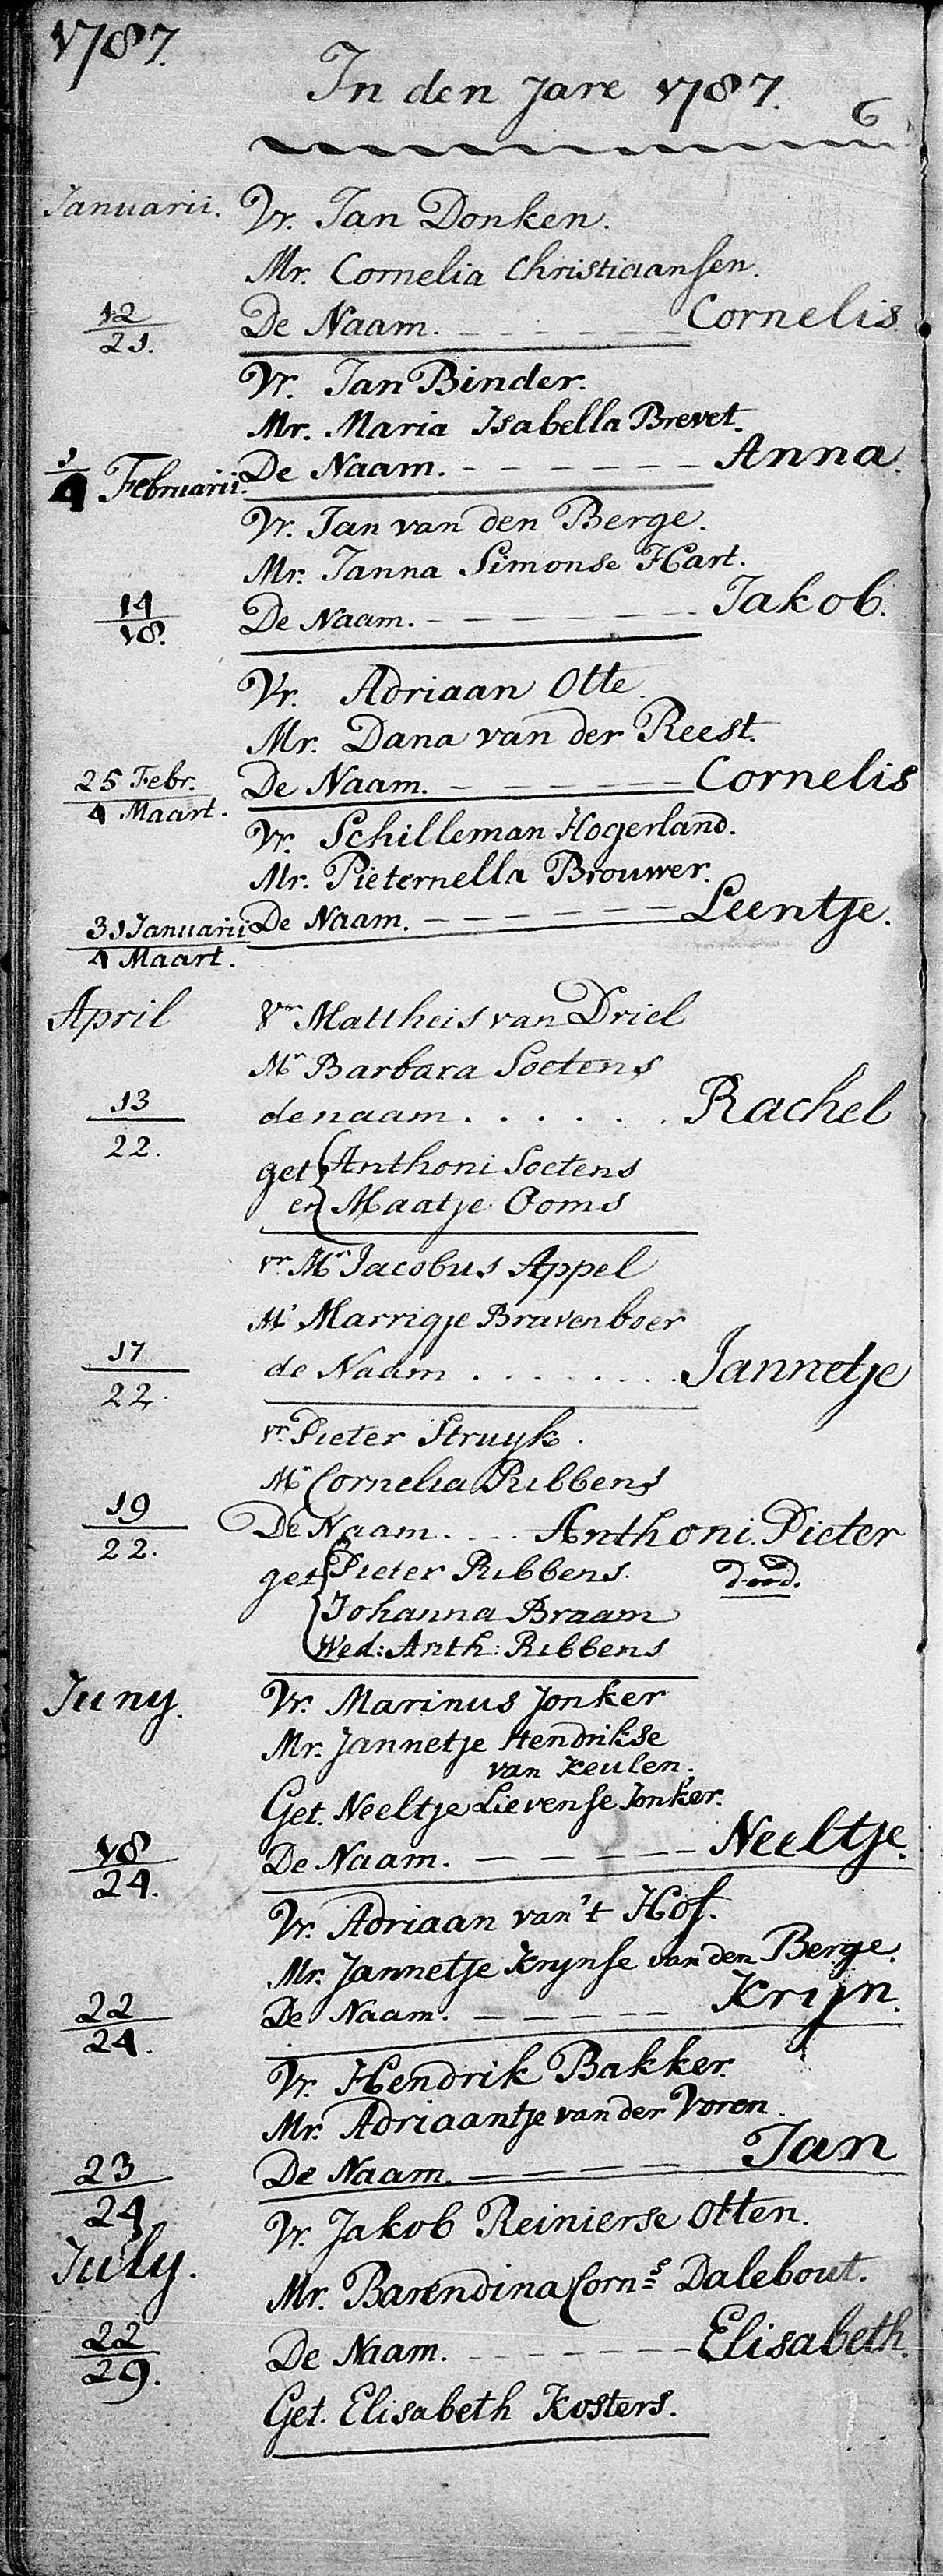 1787.
In den Jare 1787.
6
Januarii. Vr. Jan Donken.
Mr. Cornelia Christiaansen.
12/21. De Naam. - - - - - - Cornelis
Vr. Jan Binder.
Mr. Maria Isabella Brevet.
1/4 Februarii. De Naam. - - - - - - Anna.
Vr. Jan van den Berge.
Mr. Janna Simonse Hart.
14/18. De Naam. - - - - - - Jakob.
Vr. Adriaan Otte.
Mr. Dana van der Reest.
25 Febr./4 Maart. De Naam. - - - - - - Cornelis
Vr. Schilleman Hogerland.
Mr. Pieternella Brouwer.
31 Januarii/4 Maart. De Naam. - - - - - - Leentje.
April Vr Mattheis van Driel
Mr Barbara Soetens
13/22. de naam . . . . . . Rachel
get { Anthoni Soetens
en { Maatje Ooms
vr. Mr Jacobus Appel
Mr Marrigje Bravenboer
17/22. de Naam . . . . . . . Jannetje
vr. Pieter Struyk.
Mr Cornelia Ribbens
19/22. De Naam. . . . Anthoni. Pieter
get { Pieter Ribbens. dood.
{ Johanna Braam
Wed: Anth: Ribbens
Juny. Vr. Marinus Jonker
Mr. Jannetje Hendrikse
van Keulen.
Get. Neeltje Lievense Jonker.
18/24. De Naam. - - - - - Neeltje.
Vr. Adriaan van't Hof.
Mr. Jannetje Krynse van den Berge.
22/24. De Naam. - - - - - Krijn.
Vr. Hendrik Bakker.
Mr. Adriaantje van der Voren.
23/24 De Naam. - - - - - Jan
Vr. Jakob Reinierse Otten.
July.
Mr. Barendina Corns Dalebout.
22/29. De Naam. - - - - - - - Elisabeth.
Get. Elisabeth Kosters.